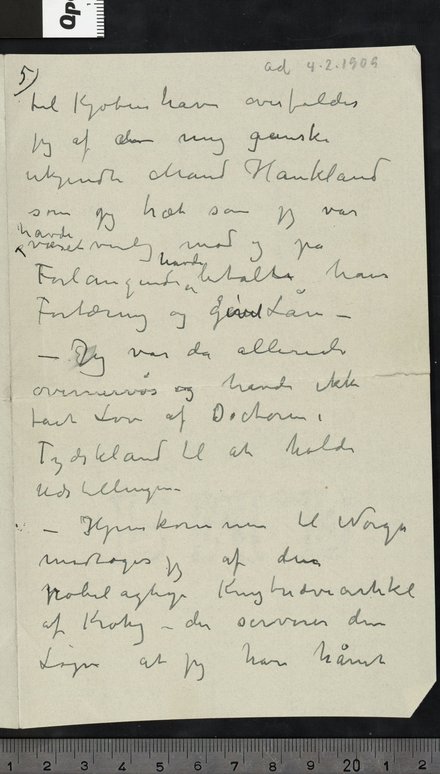 ad 4.2.1909
5)
til Kjøbenhavn overfaldes
jeg af den mig ganske
ukjendte Mand Hankland
som jeg træt som jeg var
havde
været venlig mod og på
havde
Forlangende betalte hans
Fortæring og givet Lån –
– Jeg var da allerede
overnervøs og havde ikke
faaet Lov af Doctoren i
Tydskland til at holde
Udstillingen
– Hjemkommen til Norge
modtoges jeg af den
pøbelagtige Knytnæveartikel
af Krohg – der serverer den
Løgn at jeg har hånet